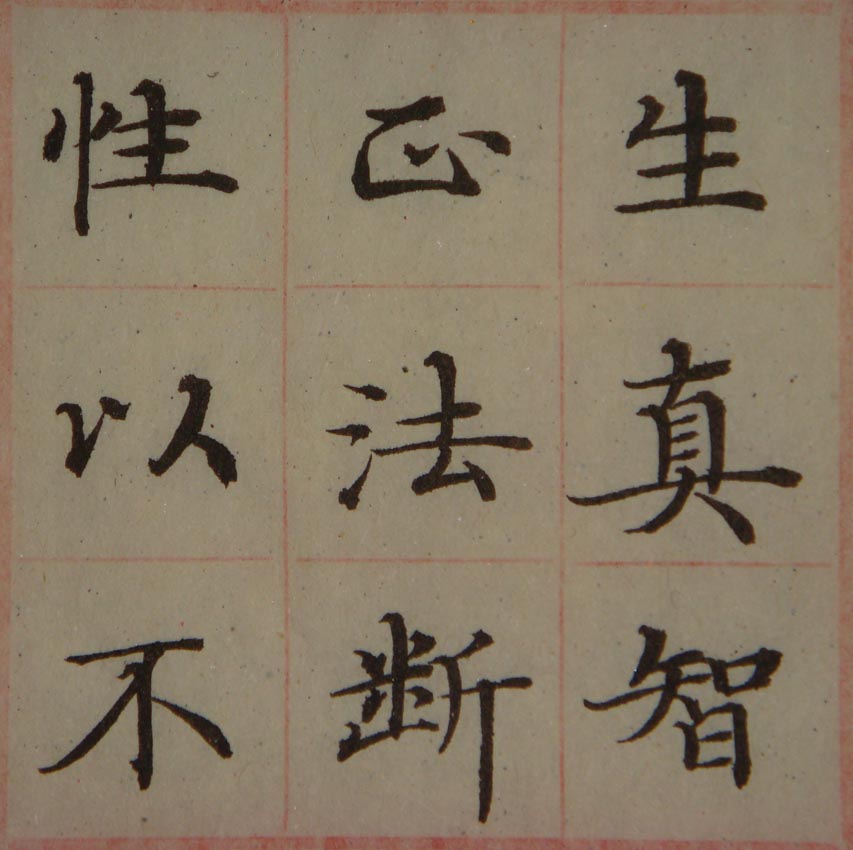 生真智
正法断
性以不